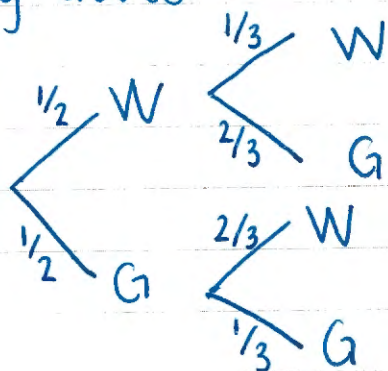 1/3 W
1/2 W
2/3 G
1/2 G
2/3 W
1/3 G